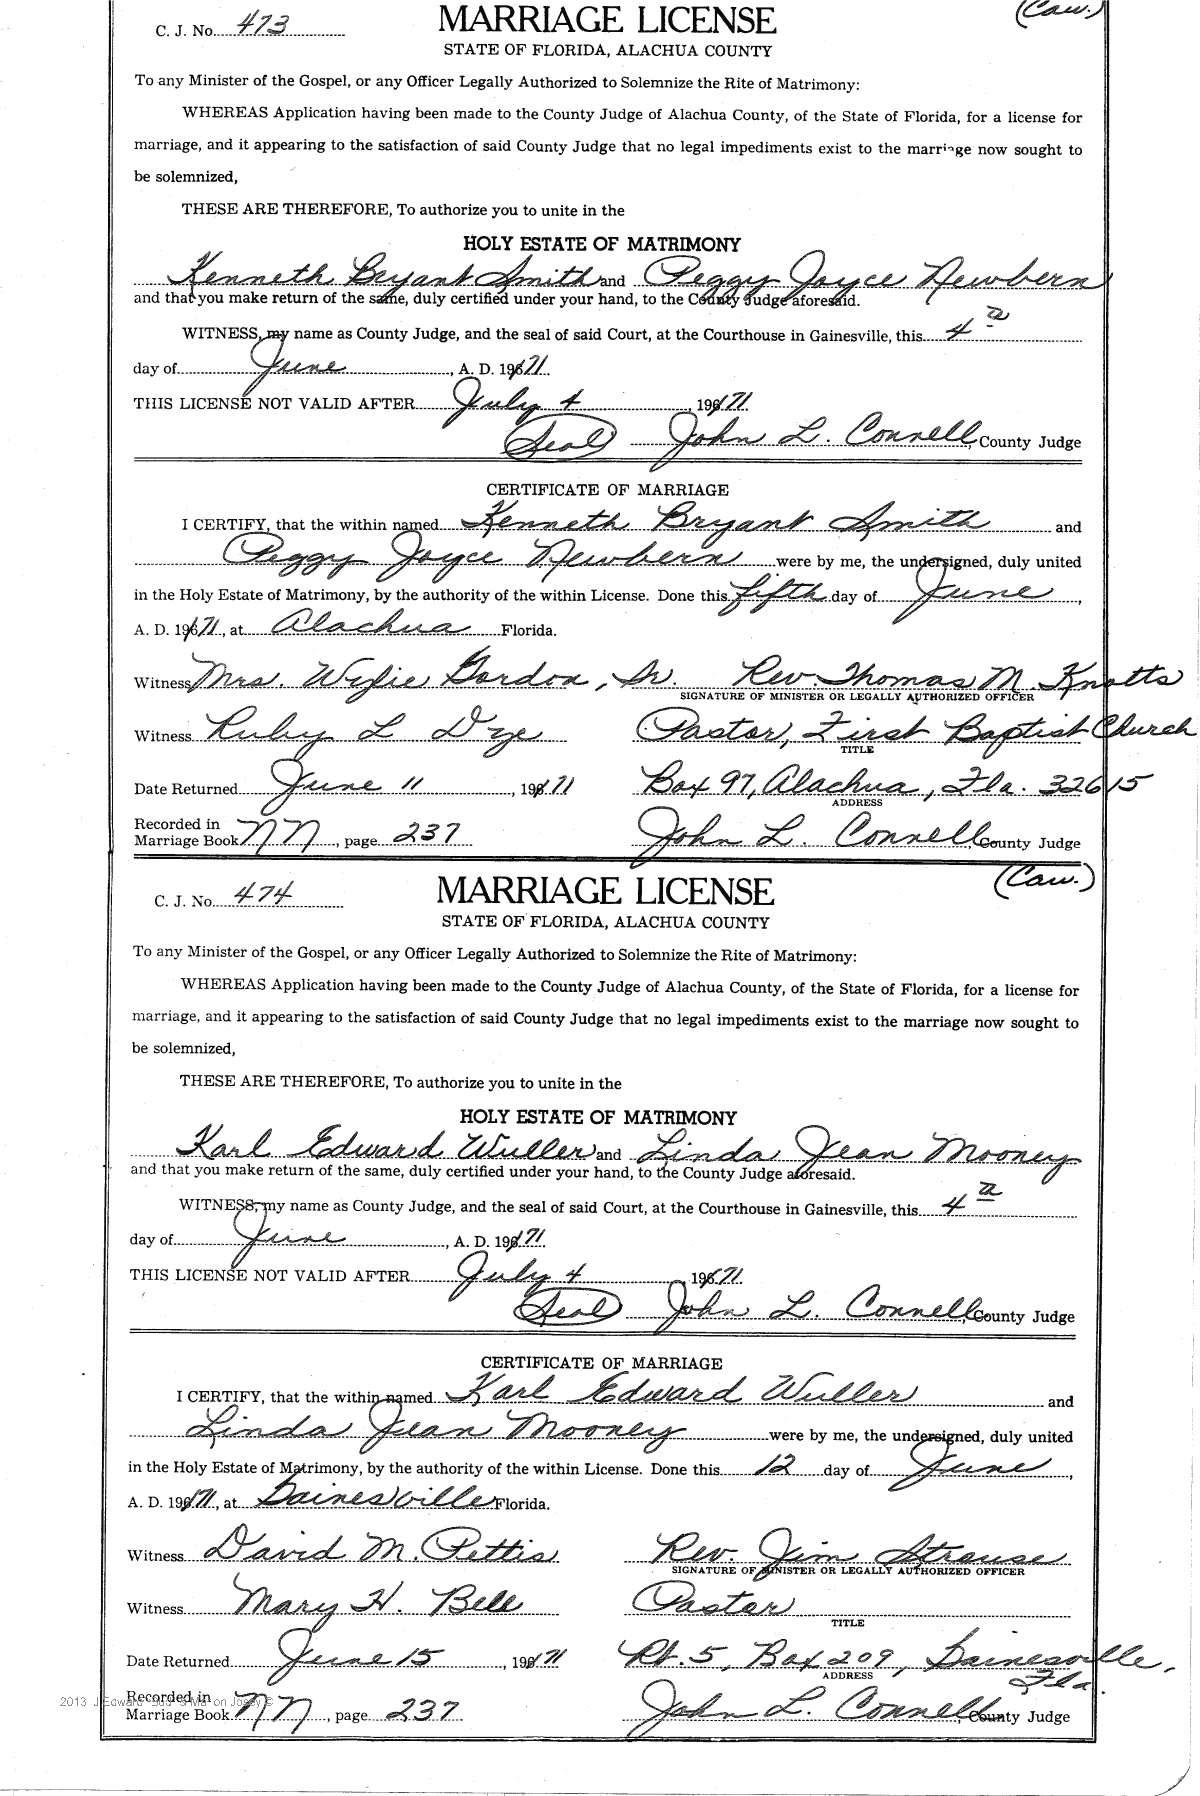 (Caw.)
C. J. No. 473
MARRIAGE LICENSE
STATE OF FLORIDA, ALACHUA COUNTY
To any Minister of the Gospel, or any Officer Legally Authorized to Solemnize the Rite of Matrimony:
WHEREAS Application having been made to the County Judge of Alachua County, of the State of Florida, for a license for
marriage, and it appearing to the satisfaction of said County Judge that no legal impediments exist to the marriage now sought to
be solemnized,
THESE ARE THEREFORE, To authorize you to unite in the
HOLY ESTATE OF MATRIMONY
Kenneth Bryant Smith and Peggy Joyce Newbern
and that you make return of the same, duly certified under your hand, to the County Judge aforesaid.
WITNESS, my name as County Judge, and the seal of said Court, at the Courthouse in Gainesville, this 4th
day of June, A. D. 1971
THIS LICENSE NOT VALID AFTER July 4, 1971
(Seal) John L. Connell, County Judge
CERTIFICATE OF MARRIAGE
I CERTIFY, that the within named Kenneth Bryant Smith and
Peggy Joyce Newbern were by me, the undersigned, duly united
in the Holy Estate of Matrimony, by the authority of the within License. Done this fifth day of June,
A. D. 1971, at Alachua Florida.
Witness Mrs. Wylie Gordon, Sr. Rev. Thomas M. Knotts
SIGNATURE OF MINISTER OR LEGALLY AUTHORIZED OFFICER
Witness Ruby L Dye Pastor, First Baptist Church
TITLE
Date Returned June 11, 1971 Box 97, Alachua, Fla. 32615
ADDRESS
Recorded in
Marriage Book NN, page 237 John L. Connell County Judge
(Caw.)
C. J. No. 474
MARRIAGE LICENSE
STATE OF FLORIDA, ALACHUA COUNTY
To any Minister of the Gospel, or any Officer Legally Authorized to Solemnize the Rite of Matrimony:
WHEREAS Application having been made to the County Judge of Alachua County, of the State of Florida, for a license for
marriage, and it appearing to the satisfaction of said County Judge that no legal impediments exist to the marriage now sought to
be solemnized,
THESE ARE THEREFORE, To authorize you to unite in the
HOLY ESTATE OF MATRIMONY
Karl Edward Wuller and Linda Jean Mooney
and that you make return of the same, duly certified under your hand, to the County Judge aforesaid.
WITNESS, my name as County Judge, and the seal of said Court, at the Courthouse in Gainesville, this 4th
day of June, A. D. 1971
THIS LICENSE NOT VALID AFTER July 4, 1971
(Seal) John L. Connell, County Judge
CERTIFICATE OF MARRIAGE
I CERTIFY, that the within named Karl Edward Wuller and
Linda Jean Mooney were by me, the undersigned, duly united
in the Holy Estate of Matrimony, by the authority of the within License. Done this 12 day of June,
A. D. 1971, at Gainesville Florida.
Witness David M. Pettis Rev. Jim Strouse
SIGNATURE OF MINISTER OR LEGALLY AUTHORIZED OFFICER
Witness Mary H. Bell Pastor
TITLE
Date Returned June 15, 1971 Rt. 5, Box 209, Gainesville, Fla.
ADDRESS
Recorded in
Marriage Book NN, page 237 John L. Connell, County Judge
2013 J Edward